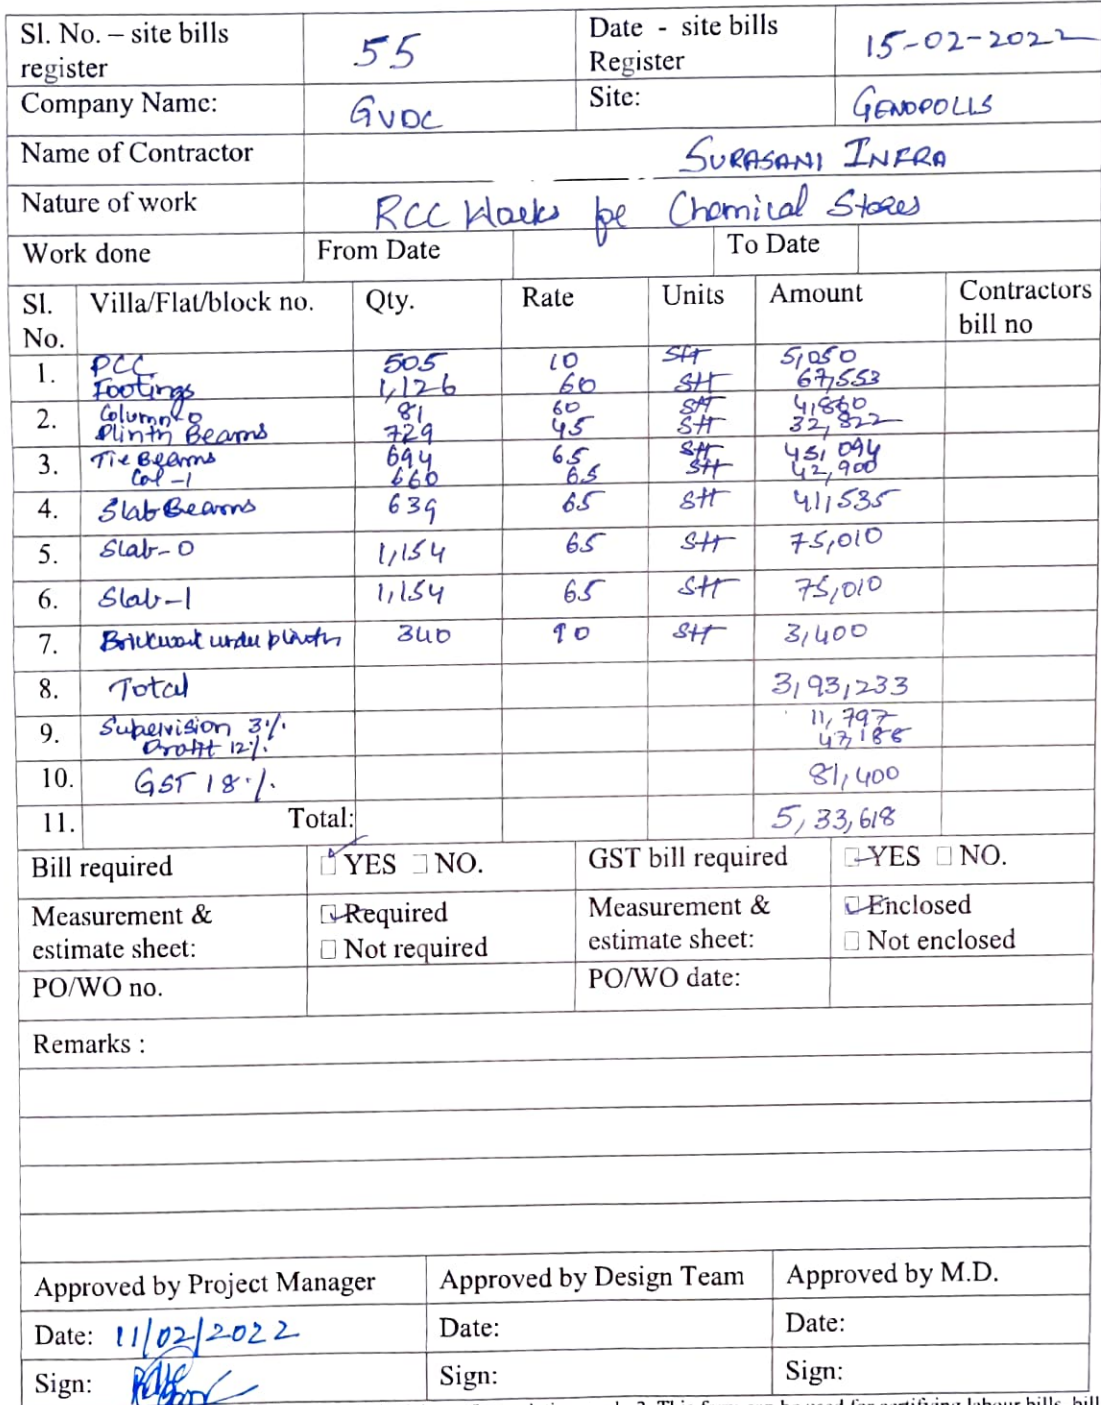 Sl. No. – site bills register 55 Date - site bills Register 15-02-2022
Company Name: GVDC Site: GENOPOLLS
Name of Contractor SURASANI INFRA
Nature of work RCC Works for Chemical Stores
Work done From Date To Date
Sl. No. Villa/Flat/block no. Qty. Rate Units Amount Contractors bill no
1. PCC 505 10 Sft 5,050
Footings 1,126 60 Sft 67,553
2. Column-0 81 60 Sft 4,860
Plinth Beams 729 45 Sft 32,822
3. Tie Beams 694 65 Sft 45,094
Col-1 660 65 Sft 42,900
4. Slab Beams 639 65 Sft 41,535
5. Slab-0 1,154 65 Sft 75,010
6. Slab-1 1,154 65 Sft 75,010
7. Brickwork under plinth 340 10 Sft 3,400
8. Total 3,93,233
9. Supervision 3% 11,797
Profit 12% 47,188
10. GST 18% 81,400
11. Total: 5,33,618
Bill required YES NO. GST bill required YES NO.
Measurement & estimate sheet: Required Measurement & estimate sheet: Enclosed
Not required Not enclosed
PO/WO no. PO/WO date:
Remarks :
Approved by Project Manager Approved by Design Team Approved by M.D.
Date: 11/02/2022 Date: Date:
Sign: Sign: Sign: